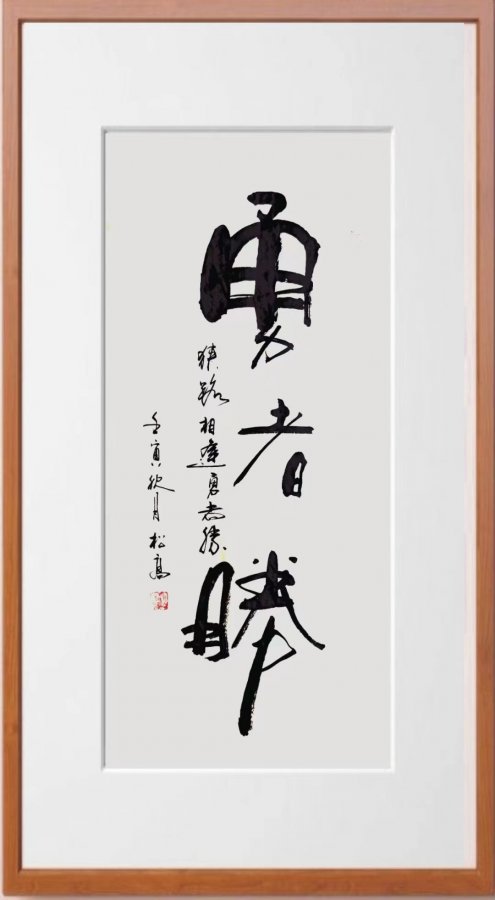 勇者勝
狹路相逢勇者勝
壬寅秋月松高